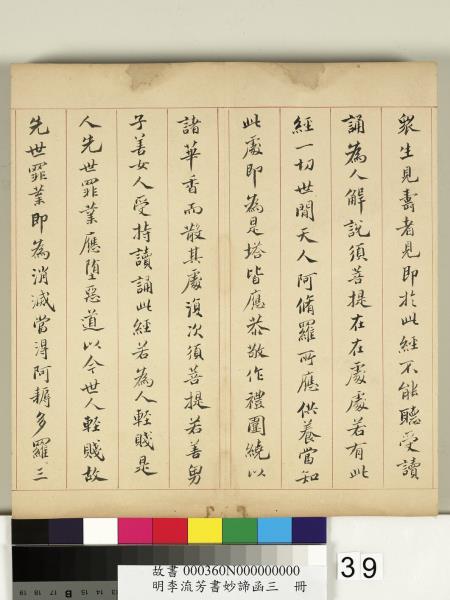 衆生見壽者見即於此經不能聽受讀
誦為人解說須菩提在在處處若有此
經一切世間天人阿脩羅所應供養當知
此處即為是塔皆應恭敬作禮圍繞以
諸華香而散其處復次須菩提若善男
子善女人受持讀誦此經若為人輕賤是
人先世罪業應墮惡道以今世人輕賤故
先世罪業即為消滅當得阿耨多羅三
故書 000360N000000000
明李流芳書妙諦函三 冊
39